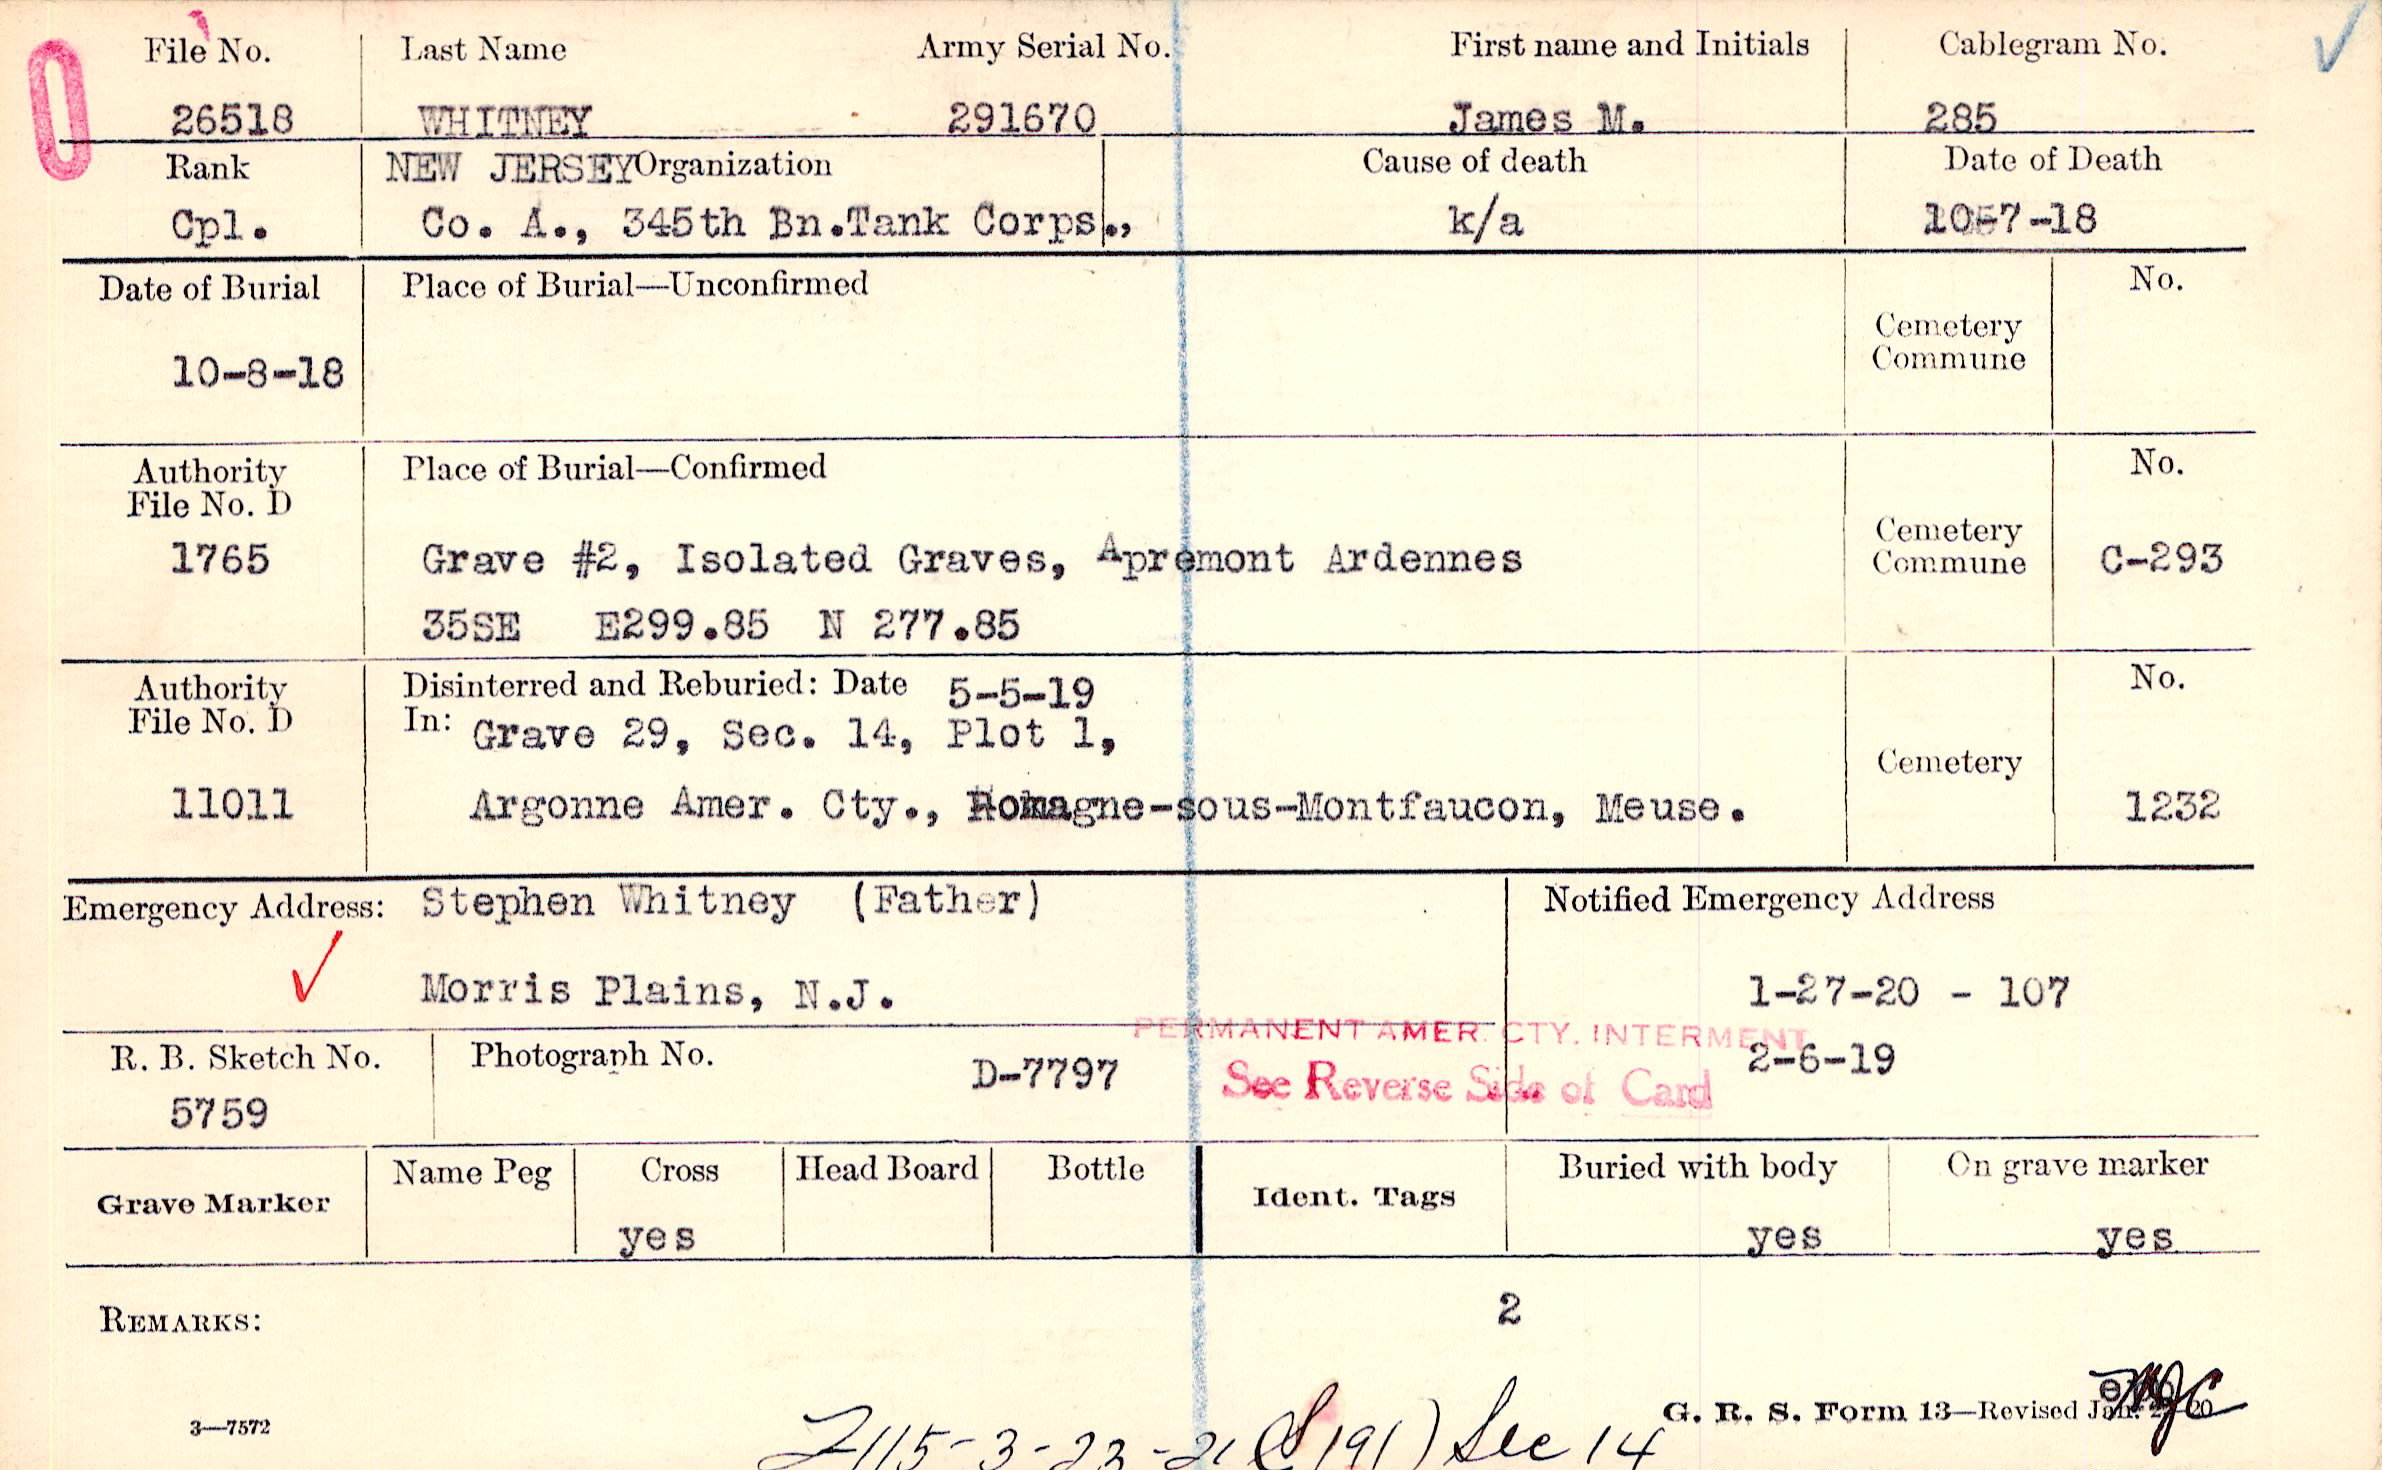 File No. Last Name Army Serial No. First name and Initials Cablegram No.
26518 WHITNEY 291670 James M. 285
Rank NEW JERSEY Organization Cause of death Date of Death
Cpl. Co. A., 345th Bn.Tank Corps., k/a 10-7-18
Date of Burial Place of Burial—Unconfirmed No.
Cemetery
Commune
10-8-18
Authority Place of Burial—Confirmed No.
File No. D
1765 Grave #2, Isolated Graves, Apremont Ardennes Cemetery
Commune C-293
35SE E299.85 N 277.85
Authority Disinterred and Reburied: Date 5-5-19 No.
File No. D In: Grave 29, Sec. 14, Plot 1,
Cemetery
11011 Argonne Amer. Cty., Romagne-sous-Montfaucon, Meuse. 1232
Emergency Address: Stephen Whitney (Father) Notified Emergency Address
Morris Plains, N.J. 1-27-20 - 107
PERMANENT AMER. CTY. INTERMENT
R. B. Sketch No. Photograph No. D-7797 2-6-19
See Reverse Side of Card
5759
Name Peg Cross Head Board Bottle Buried with body On grave marker
Grave Marker Ident. Tags
yes yes yes
2
REMARKS:
G. R. S. Form 13—Revised Jan.
3—7572
3-23-21 (S191) Sec 14